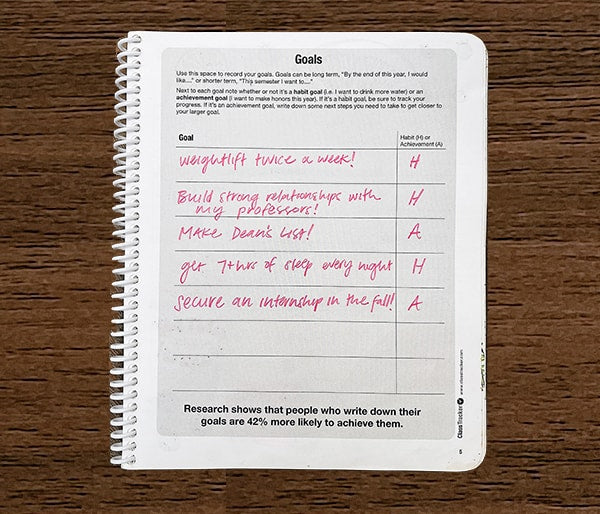 Goals
Use this space to record your goals. Goals can be long term, "By the end of this year, I would
like...." or shorter term, "This semester I want to...."
Next to each goal note whether or not it's a habit goal (i.e. I want to drink more water) or an
achievement goal (I want to make honors this year). If it's a habit goal, be sure to track your
progress. If it's an achievement goal, write down some next steps you need to take to get closer to
your larger goal.
Goal
Habit (H) or
Achievement (A)
weightlift twice a week! H
Build strong relationships with
my professors! H
Make Dean's List! A
get 7+hrs of sleep every night H
Secure an internship in the fall! A
Research shows that people who write down their
goals are 42% more likely to achieve them.
ClassTracker www.classtracker.com
5